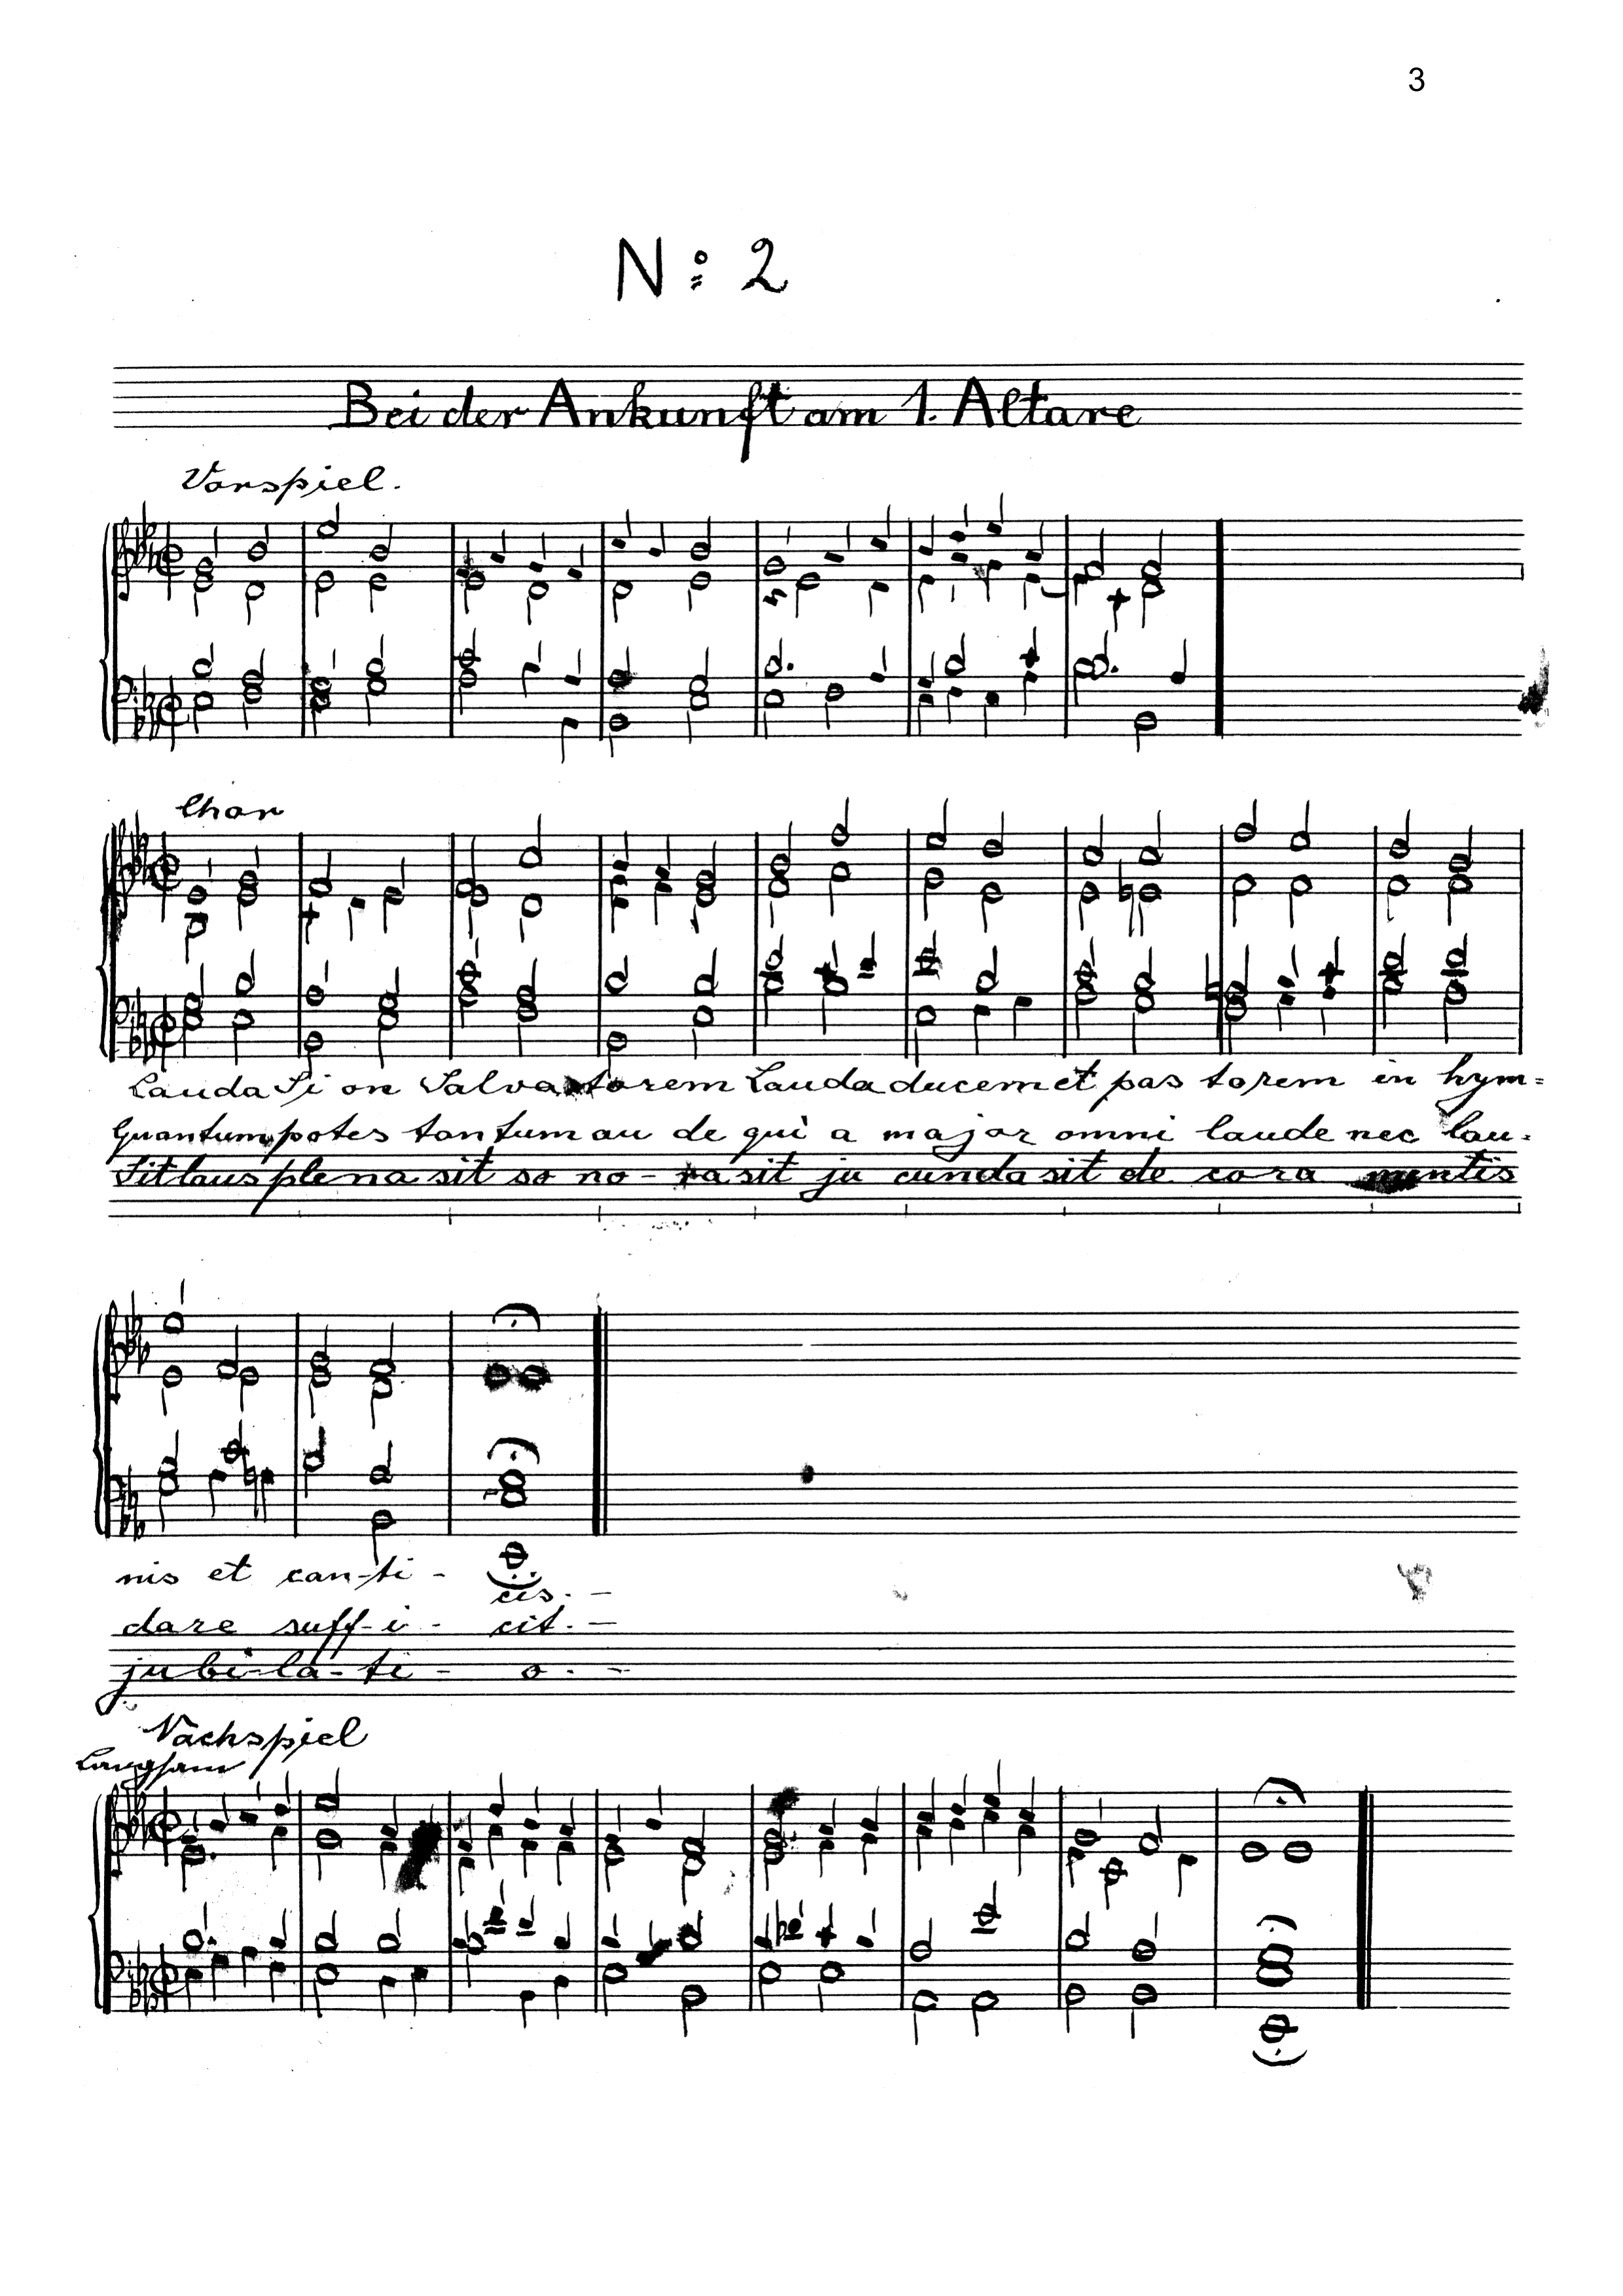 3
No: 2
Bei der Ankunft am 1. Altare
Vorspiel.
Chor
Lauda Si on Salvatorem Lauda ducem et pas torem in hym=
Quantum potes tantum au de qui a major omni laude nec lau-
Sit laus plena sit so no - ra sit ju cunda sit de co ra mentis
nis et can-ti - cis. -
dare suff-i - cit. -
jubi-la-ti - o. -
Nachspiel
Langsam